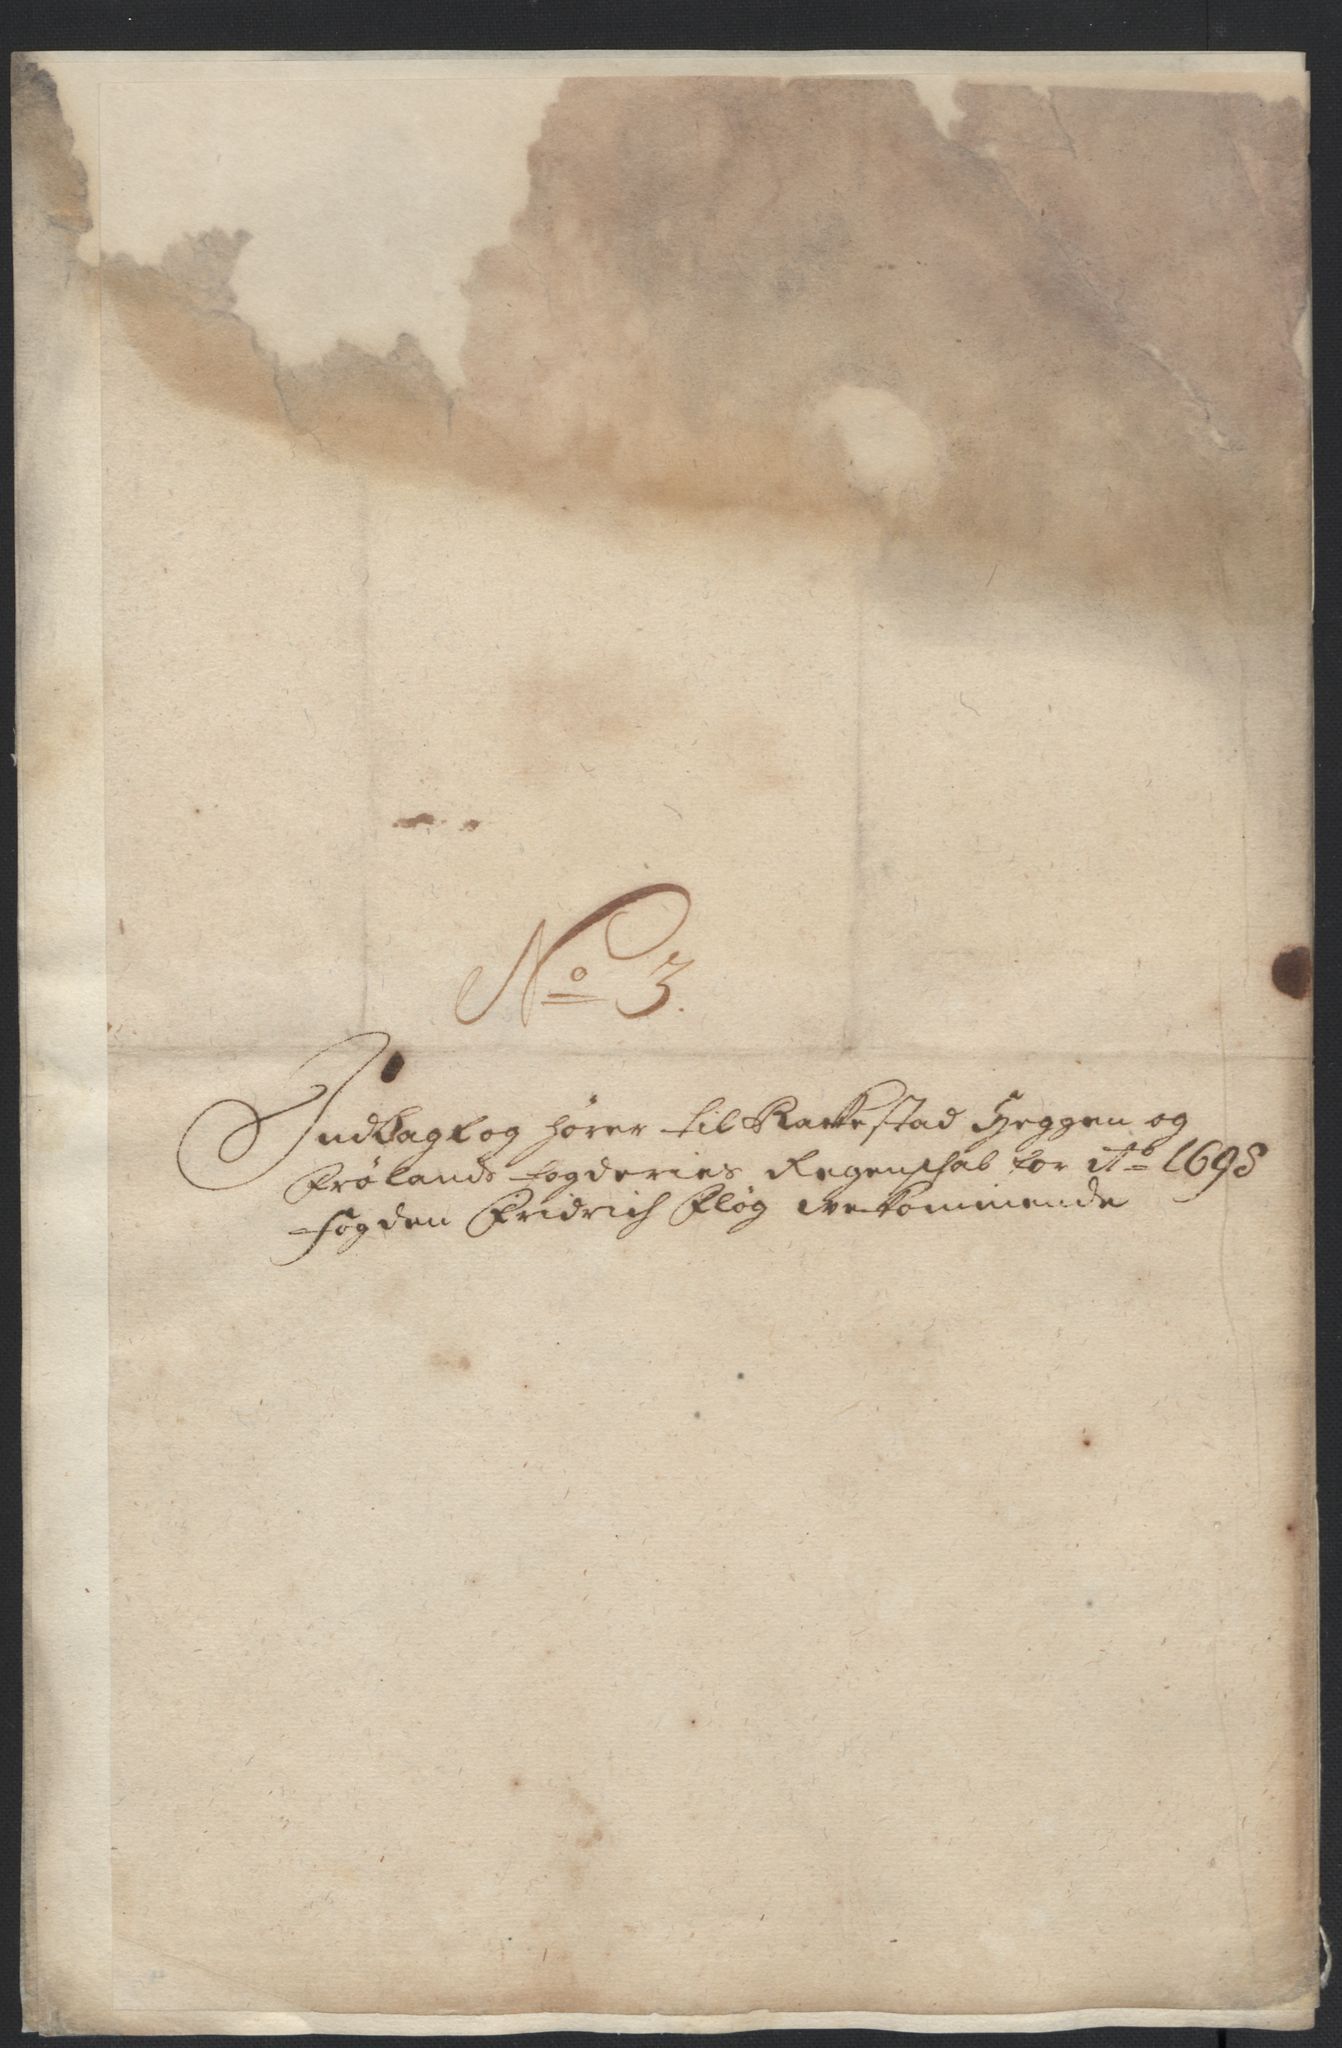 No 3.
Indlagt og hører til Rakkestad Heggen og
Frølands fogderies Regenschab for Ao 1698
fogden Fridrich Fløg vekommende